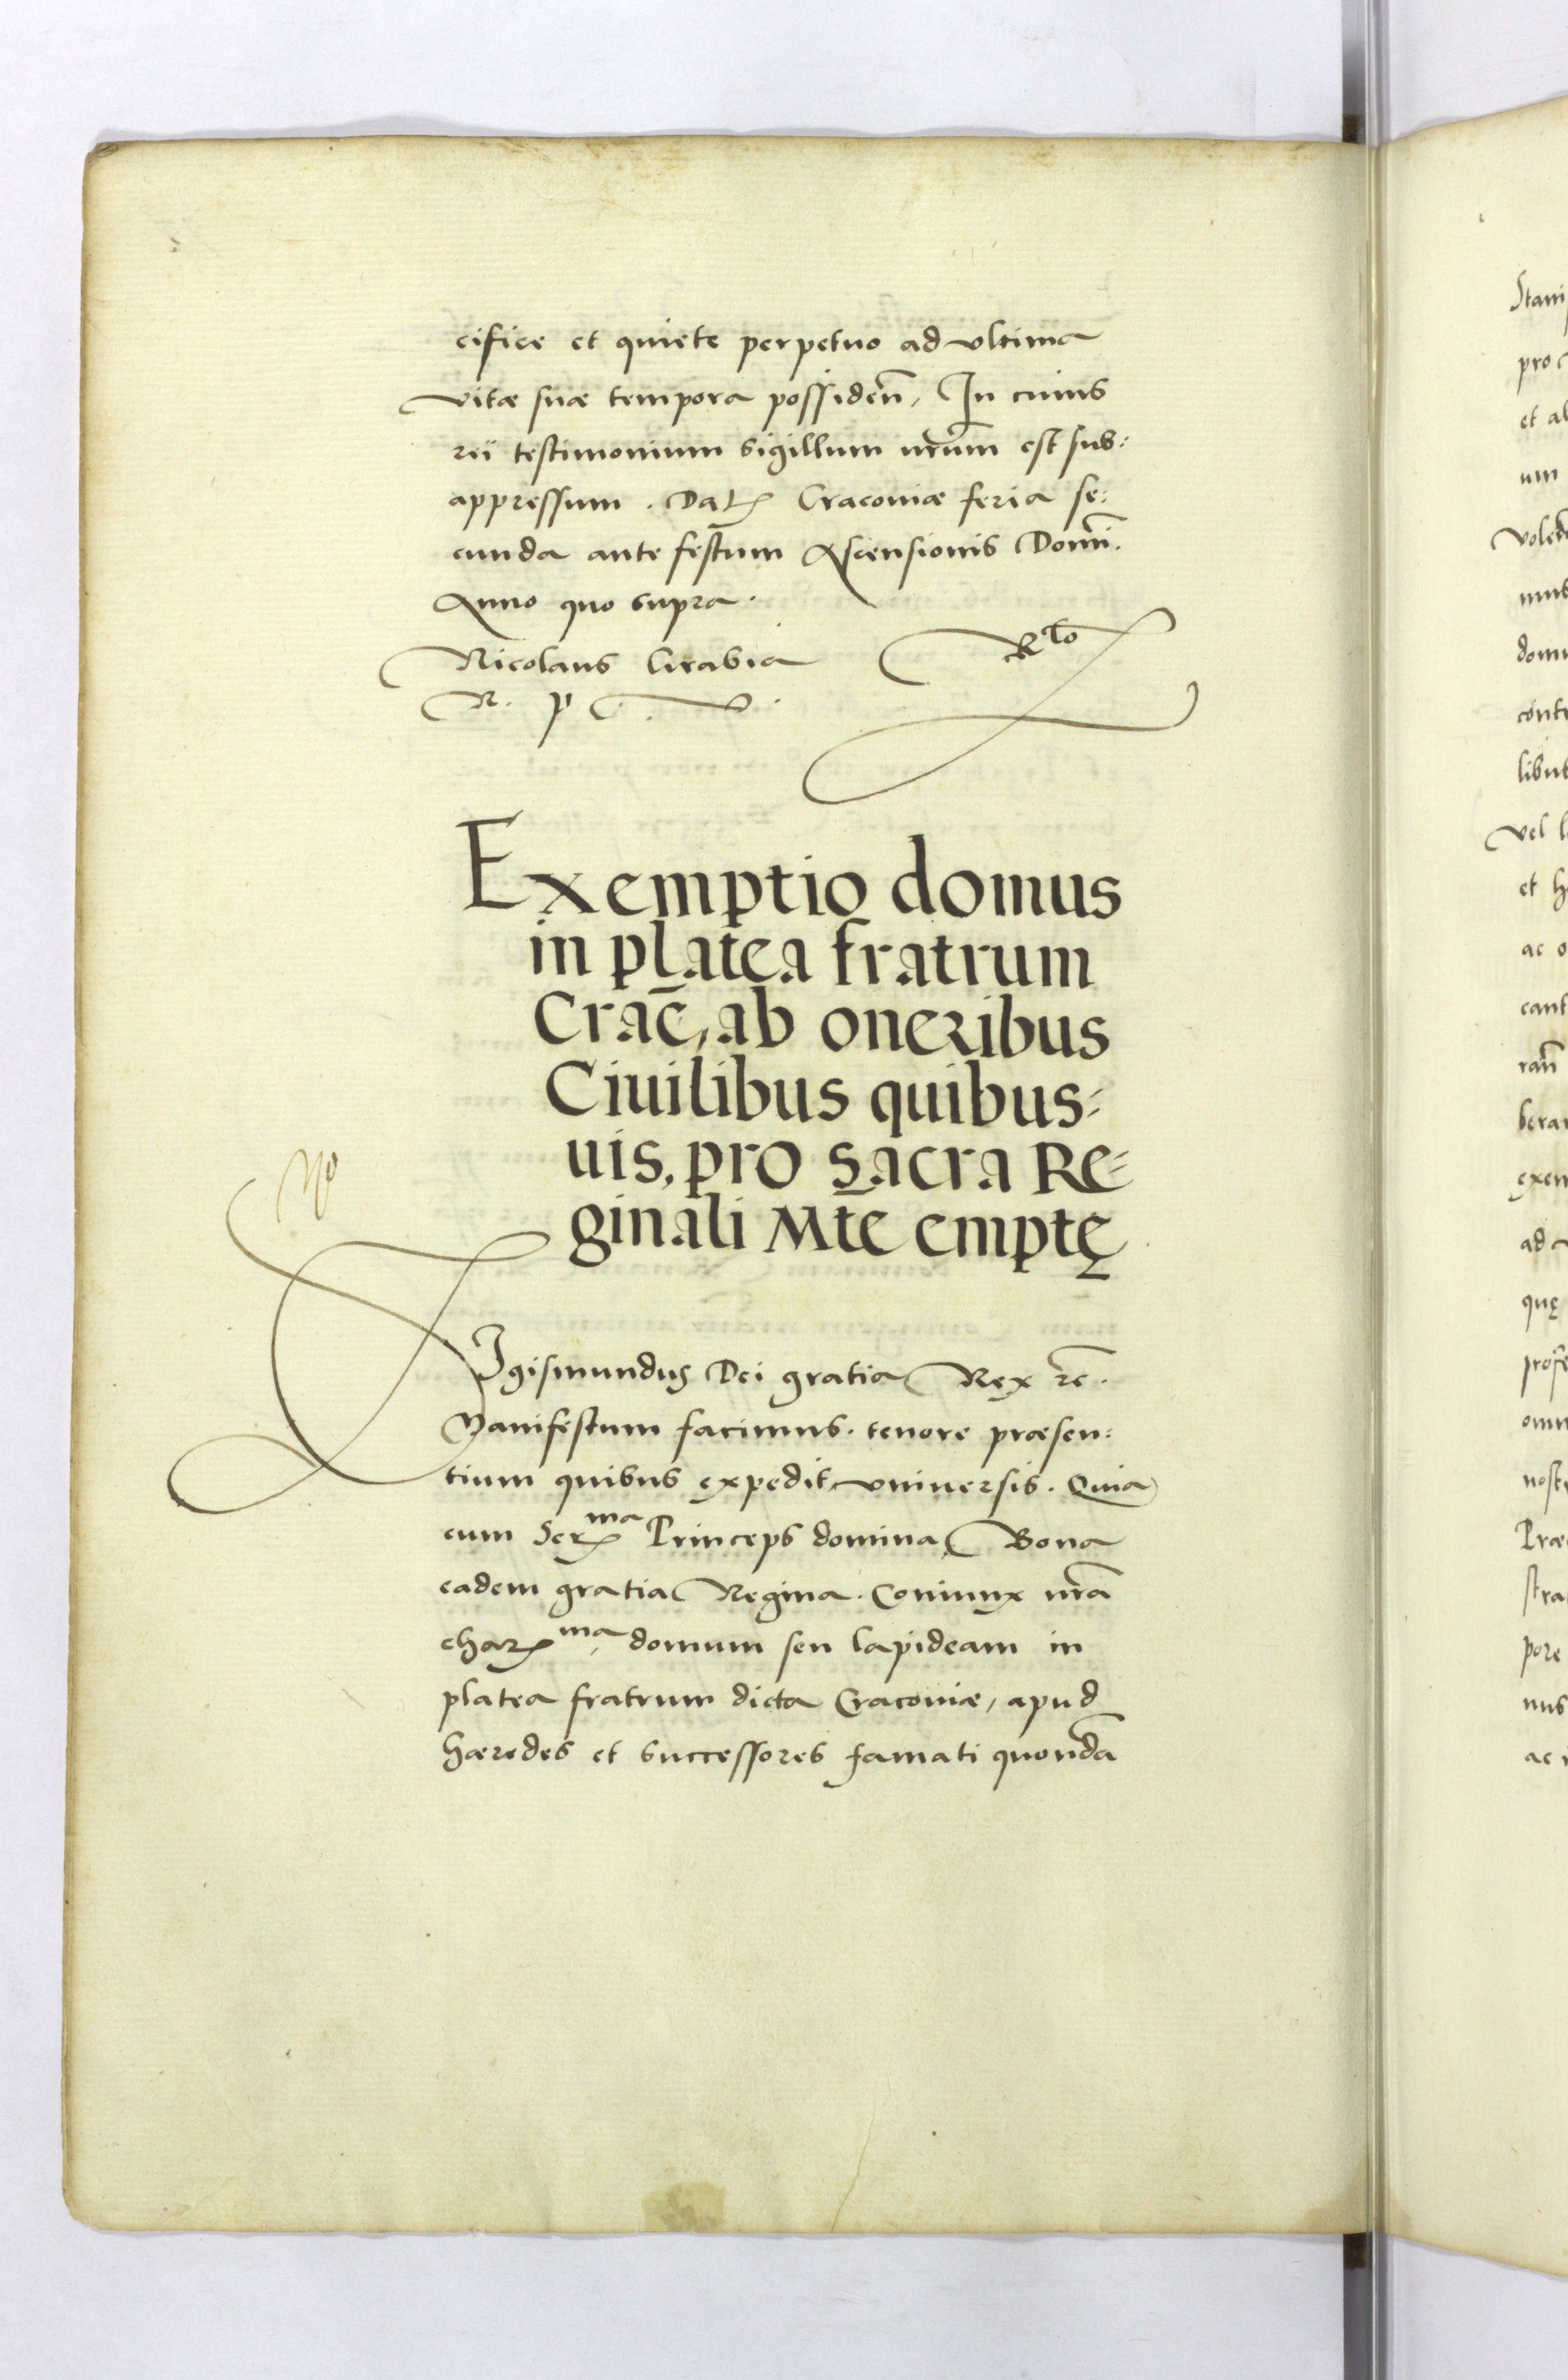 cifice et quiete perpetuo ad vltima
vitæ suæ tempora possideñ, In cuius
rei testimonium sigillum nr̃um est sub:
appressum. Dat Cracoviæ feria se:
cunda ante festum Ascensionis Domi.
Anno quo supra.
Nicolaus Grabia
R. p
Rto
Exemptio domus
in platea fratrum
Crac̄, ab oneribus
Ciuilibus quibus:
uis, pro sacra Re:
ginali Mte emptę
Sigismundus Dei gratia Rex rc̃.
Manifestum facimus. tenore præsen:
tium quibus expedit vniuersis. Quia
cum Serma Princeps domina Bona
eadem gratia Regina. Coniunx nr̃a
charma, domum seu lapideam in
platea fratrum dicta Cracoviæ, apud
hæredes et successores famati quondā
pro
et al
um
domu
vel l
et h
ac o
cant
ad v
quę
pore
nus